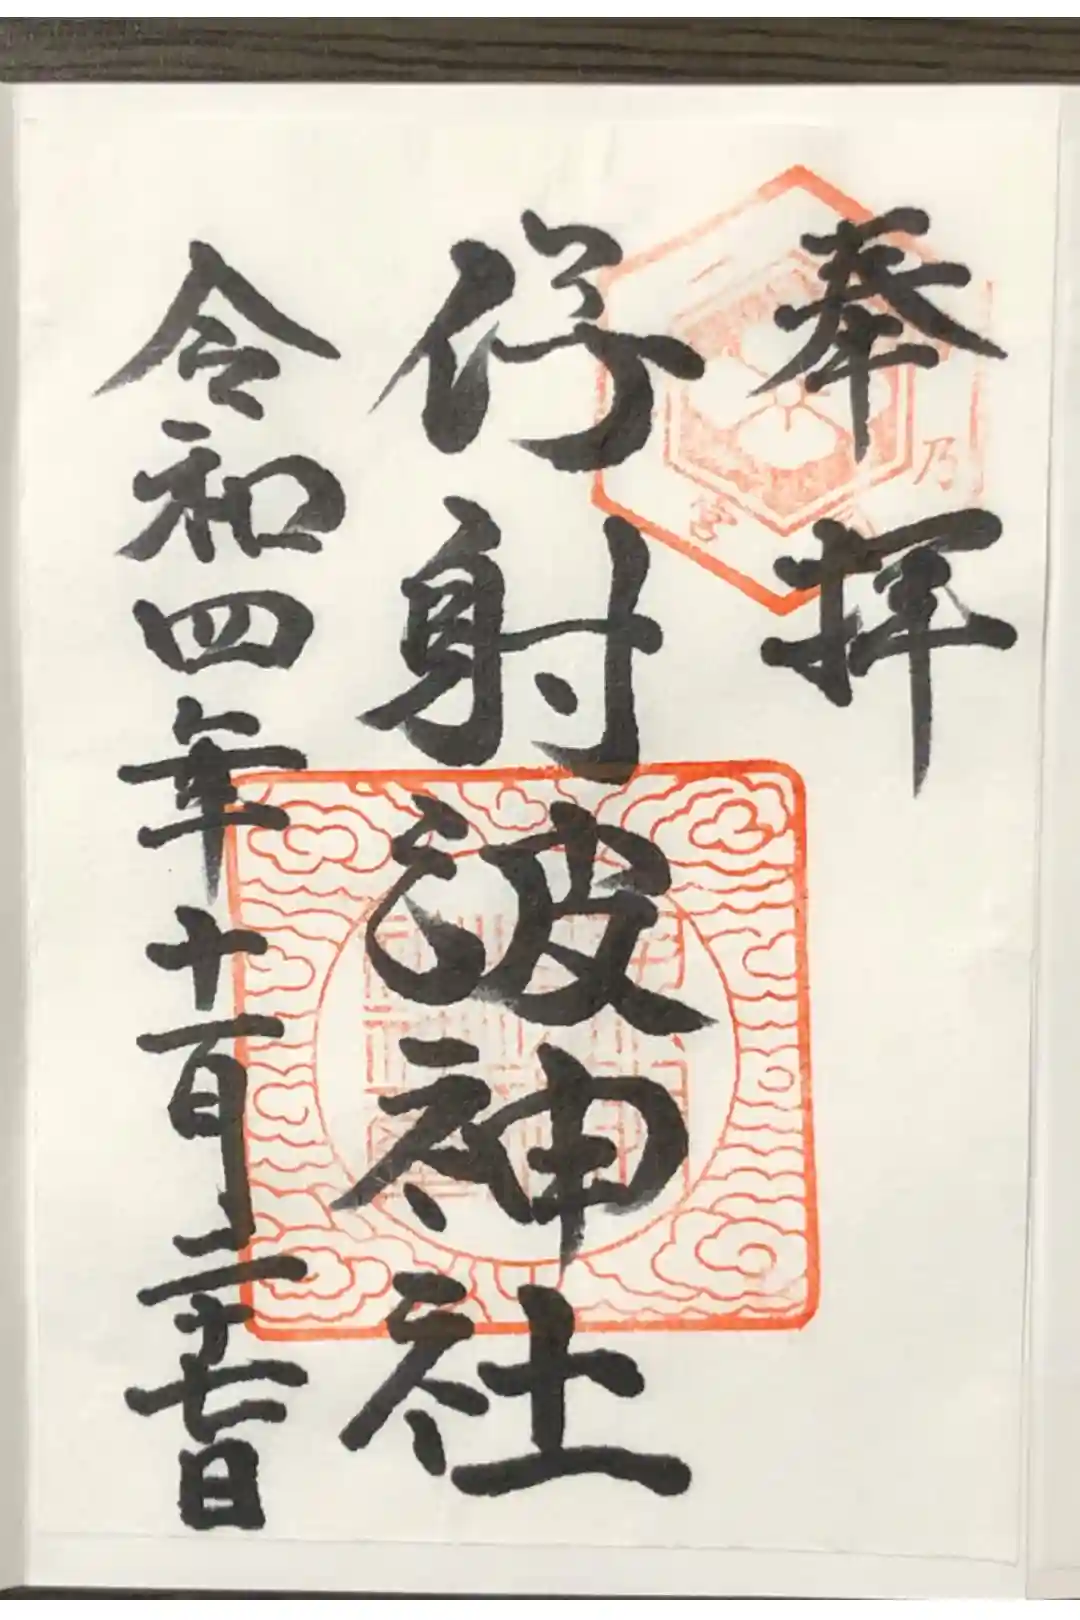 奉拝
伊射波神社
令和四年十一月二十七日
乃
宮